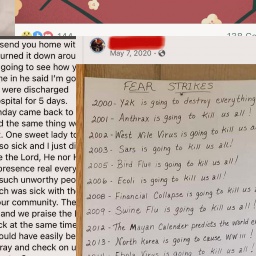 144
send you home wit
urned it down arou
going to see how y
ne in he said I'm go
were discharged
spital for 5 days.
nday came back to
d the same thing w
t. One sweet lady to
so sick and I just di
e the Lord, He nor H
presence real every
such unworthy peo
ch was sick with th
our community. The
and we praise the l
ck at the same time
ould have easily be
ray and check on u
May 7, 2020 ·
FEAR STRIKES
2000 - Y2K is going to destroy everything
2001 - Anthrax is going to kill us all!
2002 - West Nile Virus is going to kill us a
2003 - Sars is going to kill us all!
2005 - Bird Flu is going to kill us all!
2006 - Ecoli is going to kill us all!
2008 - Financial Collapse is going to kill us
2009 - Swine Flu is going to kill us all!
2012 - The Mayan Calender predicts the World e
2013 - North Korea is going to cause WW III!
Ebola Virus is going to kill us all!